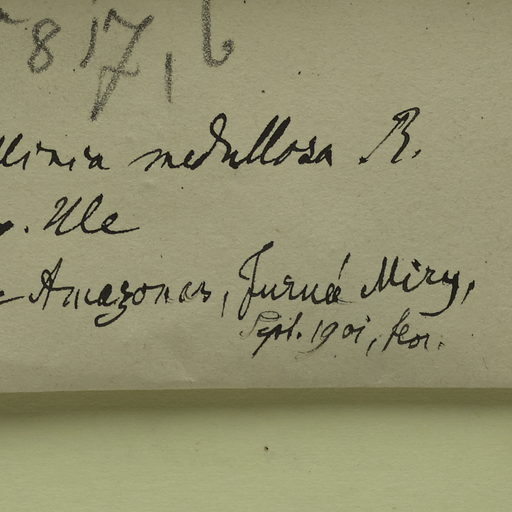 817, b
llinia medullosa R.
. Ule
Amazonas, Juruá Miry,
Sept. 1901, flor.